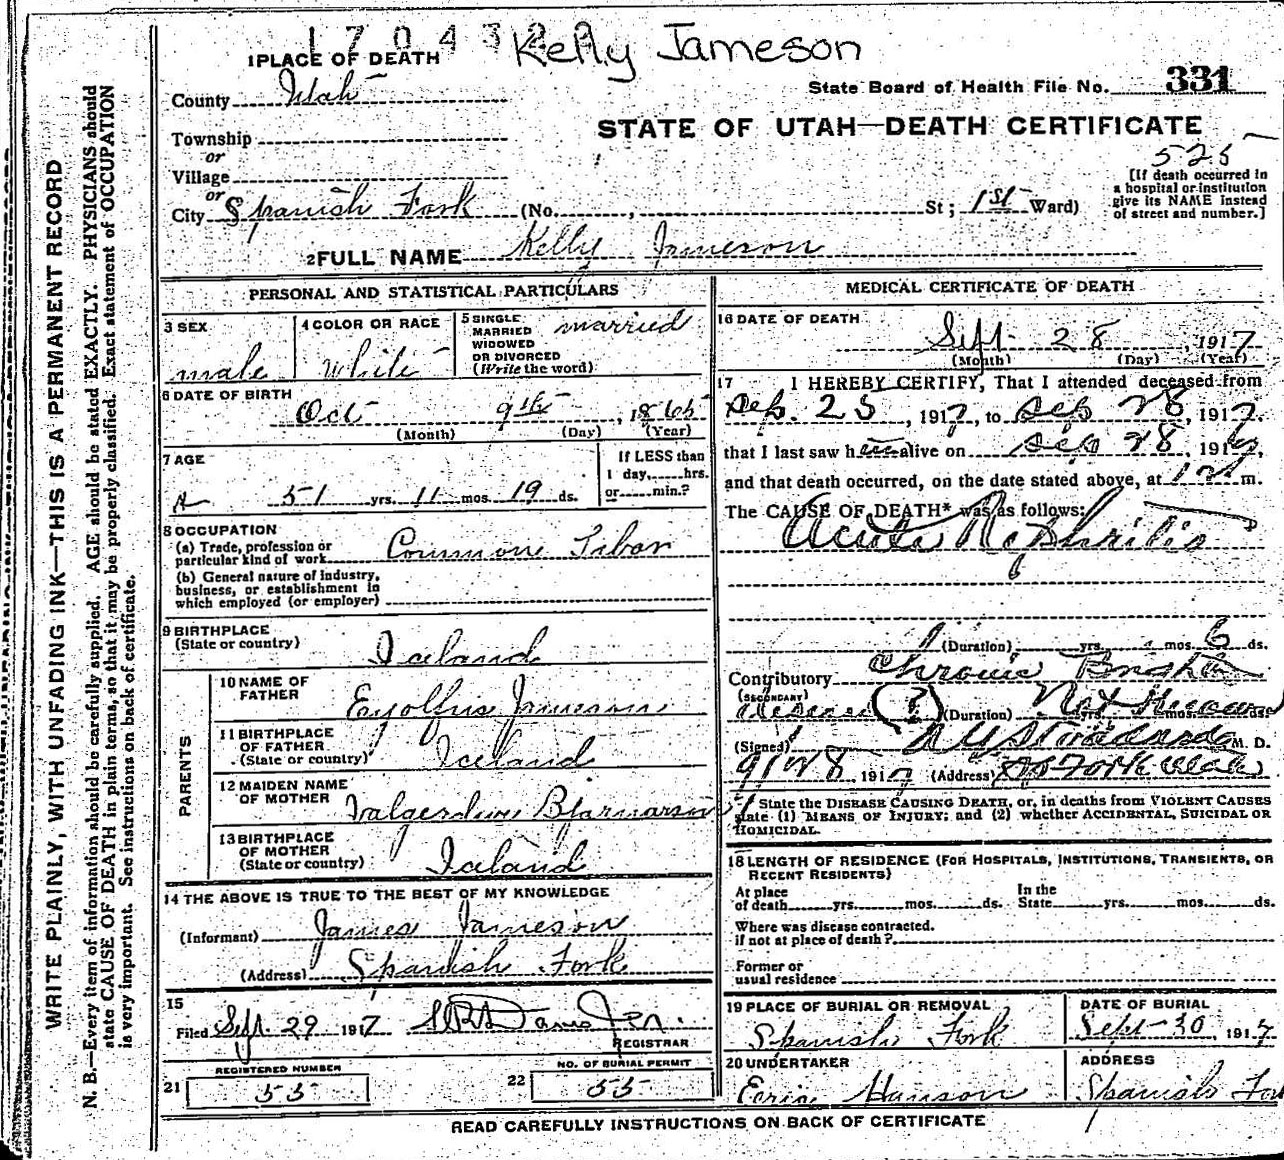 1704329
Kelly Jameson
1 PLACE OF DEATH
State Board of Health File No. 331
County Utah
STATE OF UTAH—DEATH CERTIFICATE
Township
or
Village
or
City Spanish Fork (No. , St; 1st Ward)
525
[If death occurred in
a hospital or institution
give its NAME instead
of street and number.]
2 FULL NAME Kelly Jameson
PERSONAL AND STATISTICAL PARTICULARS
3 SEX
male
4 COLOR OR RACE
White
5 SINGLE
MARRIED
WIDOWED
OR DIVORCED
(Write the word)
married
6 DATE OF BIRTH
Oct 9th, 1865
(Month) (Day) (Year)
7 AGE
51 yrs. 11 mos. 19 ds.
If LESS than
1 day, hrs.
or min.?
8 OCCUPATION
(a) Trade, profession or
particular kind of work Common Libor
(b) General nature of industry,
business, or establishment in
which employed (or employer)
9 BIRTHPLACE
(State or country)
Iceland
PARENTS
10 NAME OF
FATHER
Eyolfus Jameson
11 BIRTHPLACE
OF FATHER
(State or country)
Iceland
12 MAIDEN NAME
OF MOTHER
13 BIRTHPLACE
OF MOTHER
(State or country)
Iceland
14 THE ABOVE IS TRUE TO THE BEST OF MY KNOWLEDGE
(Informant) James Jameson
(Address) Spanish Fork
15
Filed Sept. 29 1917
REGISTRAR
REGISTERED NUMBER
21 55
NO. OF BURIAL PERMIT
22 55
MEDICAL CERTIFICATE OF DEATH
16 DATE OF DEATH
Sept. 28, 1917
(Month) (Day) (Year)
17 I HEREBY CERTIFY, That I attended deceased from
Sep. 25, 1917, to Sep 28, 1917,
that I last saw him alive on Sep 28, 1917,
and that death occurred, on the date stated above, at m.
The CAUSE OF DEATH* was as follows:
Acute Nephritis
(Duration) yrs. mos. 6 ds.
Contributory Chronic Brights
(SECONDARY)
disease (?) (Duration) Not Known yrs. mos. ds.
(Signed) M. D.
9/28 1917 (Address) Sp Fork Utah
* State the DISEASE CAUSING DEATH, or, in deaths from VIOLENT CAUSES
state (1) MEANS OF INJURY; and (2) whether ACCIDENTAL, SUICIDAL OR
HOMICIDAL.
18 LENGTH OF RESIDENCE (FOR HOSPITALS, INSTITUTIONS, TRANSIENTS, OR
RECENT RESIDENTS)
At place
of death yrs. mos. ds.
In the
State yrs. mos. ds.
Where was disease contracted.
if not at place of death?
Former or
usual residence
19 PLACE OF BURIAL OR REMOVAL
Spanish Fork
DATE OF BURIAL
Sept 30, 1917
20 UNDERTAKER
Hanson
ADDRESS
Spanish Fork
READ CAREFULLY INSTRUCTIONS ON BACK OF CERTIFICATE
WRITE PLAINLY, WITH UNFADING INK—THIS IS A PERMANENT RECORD
N. B.—Every item of information should be carefully supplied. AGE should be stated EXACTLY. PHYSICIANS should
state CAUSE OF DEATH in plain terms, so that it may be properly classified. Exact statement of OCCUPATION
is very important. See instructions on back of certificate.